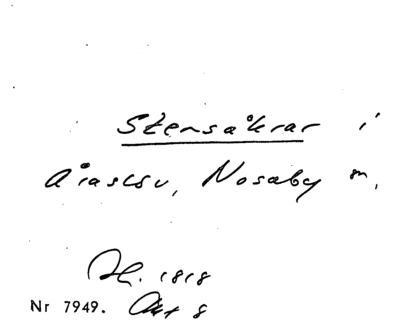 Stensåkrar i
Åraslöv, Nosaby sn,
H. 1818
Nr 7949. Akt 8